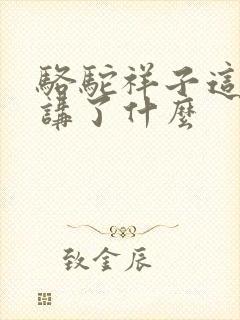 駱駝祥子這
講了什麼
致金辰